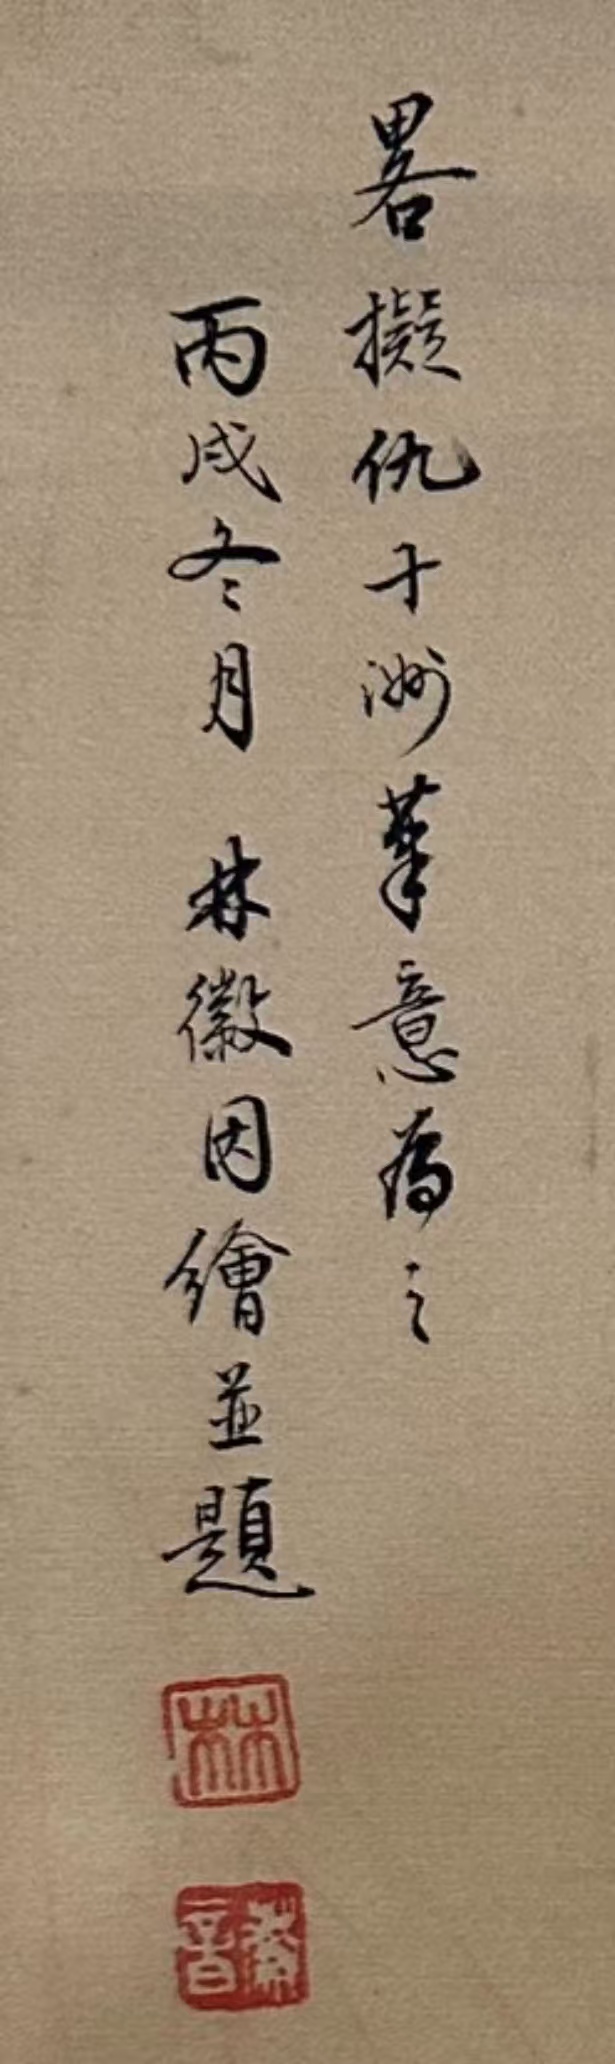 畧擬仇十洲筆意為之
丙戌冬月 林徽因繪並題
林
徽音